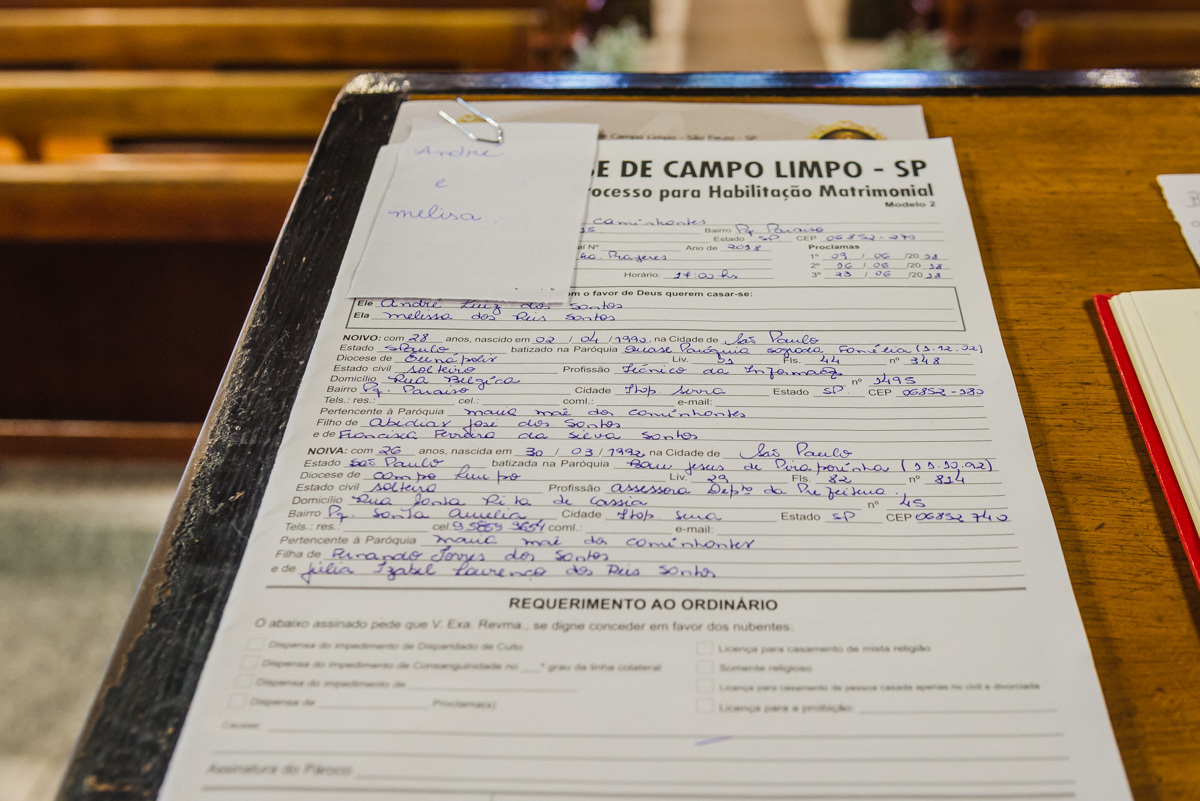 Campo Limpo - São Paulo - SP
André
e
melisa
SE DE CAMPO LIMPO - SP
rocesso para Habilitação Matrimonial
Modelo 2
caminhontes
Bairro Pq. Paraiso
Estado SP CEP 06852-270
Nº Ano de 2018 Proclamas
1º 09 / 06 /20 18
ha. Prazeres 2º 16 / 06 /20 18
Horário: 17:00 hs 3º 23 / 06 /20 18
m o favor de Deus querem casar-se:
Ele André Luiz dos Santos
Ela melissa dos Reis Santos
NOIVO: com 28 anos, nascido em 02 / 04 / 1990, na Cidade de São Paulo
Estado SPaulo batizado na Paróquia Quase Paróquia sagrada Família
Diocese de Liv. Fls. 44 nº 348
Estado civil solteiro Profissão Técnico da
Domicílio Rua Belgica nº 1495
Bairro Pq. Paraiso Cidade Itap Serra Estado SP. CEP
Tels.: res.: cel.: coml.: e-mail:
Pertencente à Paróquia maria mãe dos caminhontes
Filho de José dos Santos
e de Francisca Ferreira da Silva Santos
NOIVA: com 26 anos, nascida em 30 / 03 / 1992, na Cidade de São Paulo
Estado São Paulo batizada na Paróquia Bom Jesus de Piraporinha (11.10.92)
Diocese de campo Limpo Liv. 29 Fls. 82 nº 814
Estado civil solteira Profissão Assessora Depto da Prefeitura.
Domicílio Rua Santa Rita de Cassia nº 45
Bairro Pq. Santa Amelia Cidade Itap Serra Estado SP CEP 06852 740
Tels.: res.: cel. coml.: e-mail:
Pertencente à Paróquia maria mãe dos caminhontes
Filha de Fernando Torres dos Santos
e de Júlia Izabel Lourenço dos Reis Santos
REQUERIMENTO AO ORDINÁRIO
O abaixo assinado pede que V. Exa. Revma., se digne conceder em favor dos nubentes:
Dispensa do impedimento de Disparidade de Culto Licença para casamento de mista religião
Dispensa do impedimento de Consanguinidade no ___º grau da linha colateral Somente religioso
Dispensa do impedimento de Licença para casamento de pessoa casada apenas no civil e divorciada
Dispensa de Proclama(s) Licença para a proibição:
Causas:
Assinatura do Pároco: